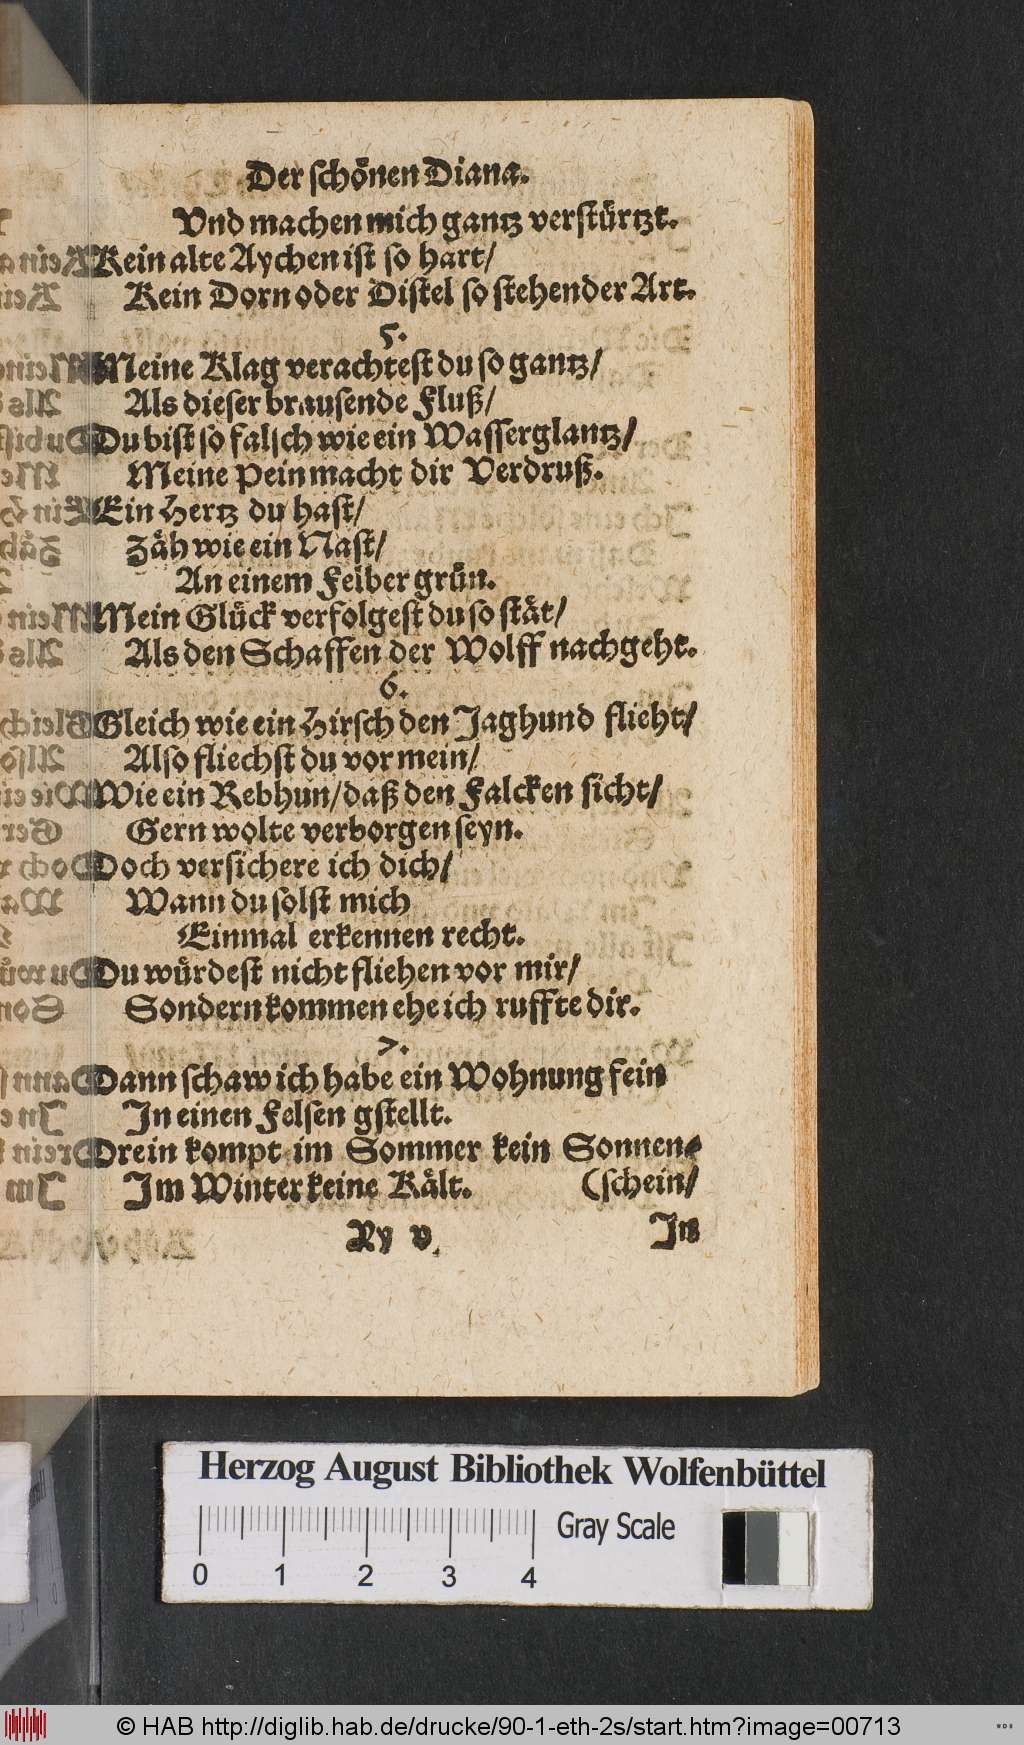 Der schönen Diana.
Vnd machen mich gantz verstürtzt.
Kein alte Aychen ist so hart/
Kein Dorn oder Distel so stehender Art.
5.
Meine Klag verachtest du so gantz/
Als dieser brausende Fluß/
Du bist so falsch wie ein Wasserglantz/
Meine Pein macht dir Verdruß.
Ein Hertz du hast/
Zäh wie ein Nast/
An einem Felber grün.
Mein Glück verfolgest du so stät/
Als den Schaffen der Wolff nachgeht.
6.
Gleich wie ein Hirsch den Jaghund flieht/
Also fliechst du vor mein/
Wie ein Rebhun/daß den Falcken sicht/
Gern wolte verborgen seyn.
Doch versichere ich dich/
Wann du solst mich
Einmal erkennen recht.
Du würdest nicht fliehen vor mir/
Sondern kommen ehe ich ruffte dir.
7.
Dann schaw ich habe ein Wohnung fein
In einen Felsen gstellt.
Drein kompt im Sommer kein Sonnen-
Im Winter keine Kält. (schein/
Ry v. In
Herzog August Bibliothek Wolfenbüttel
Gray Scale
0 1 2 3 4
© HAB http://diglib.hab.de/drucke/90-1-eth-2s/start.htm?image=00713